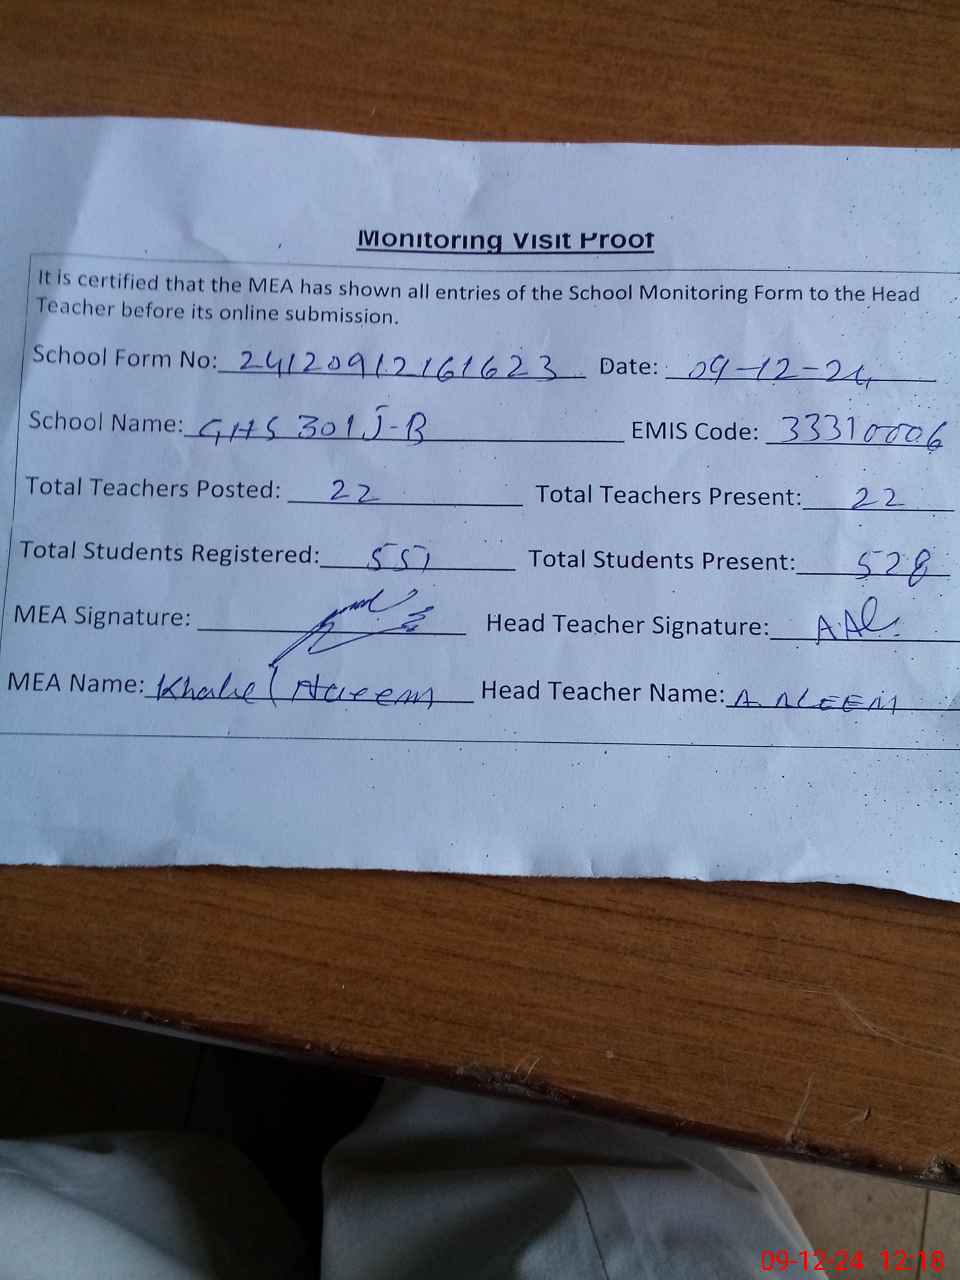 Monitoring Visit Proof
It is certified that the MEA has shown all entries of the School Monitoring Form to the Head
Teacher before its online submission.
School Form No: 24120912161623 Date: 09-12-24
School Name: GHS 301 J-B EMIS Code: 33310006
Total Teachers Posted: 22 Total Teachers Present: 22
Total Students Registered: 551 Total Students Present: 528
MEA Signature: Head Teacher Signature:
MEA Name: Khaleel Naeem Head Teacher Name: A. ALEEM
09-12-24 12:18